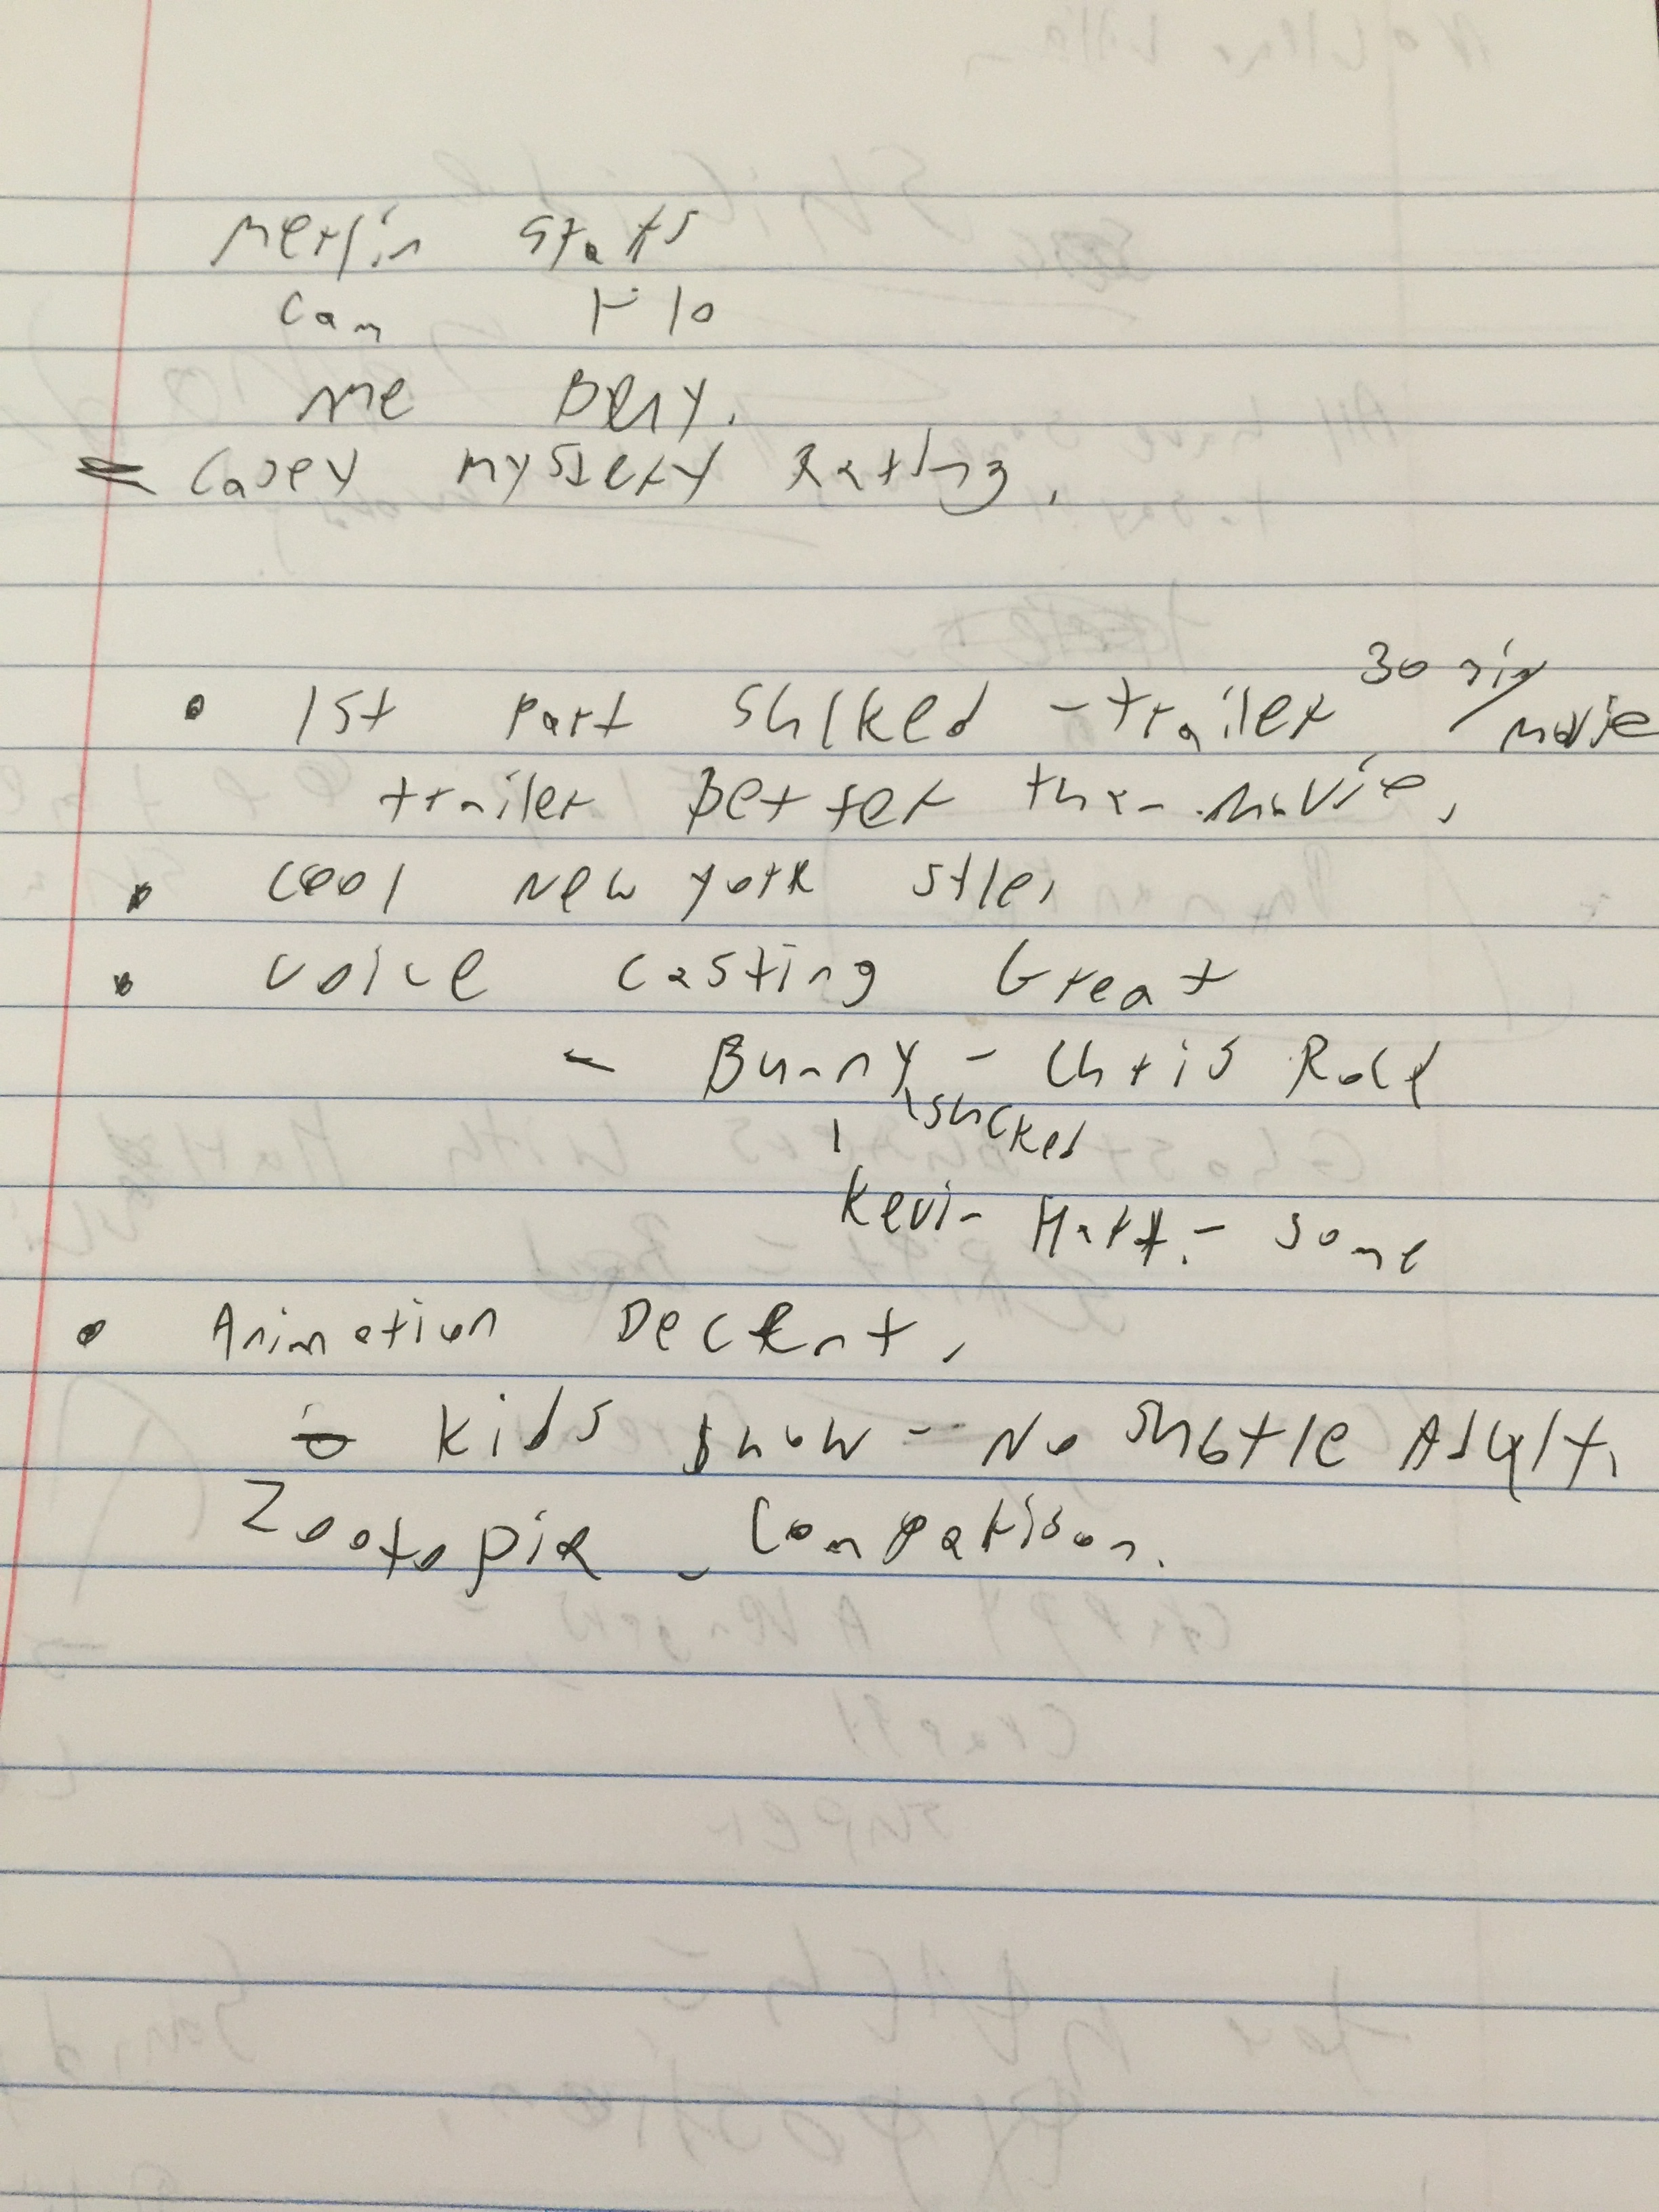 Merlin starts
Cam Flo
me Beny.
Casey mystery Rating.
• 1st part sucked - trailer 30 min/movie
trailer Better than movie.
• Cool New York stle.
• Voice casting Great
- Bunny - Chris Rock
sucked
Kevin Hart. - some
• Animation Decent.
Kids show - No subtle Adult.
Zootopia - Comparison.